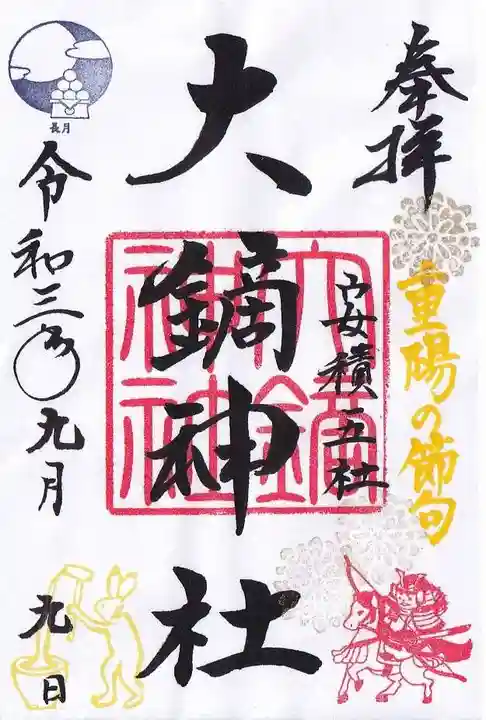 奉拝
重陽の節句
安積五社
大鏑神社
大鏑
神社
長月
令和三年九月
九日